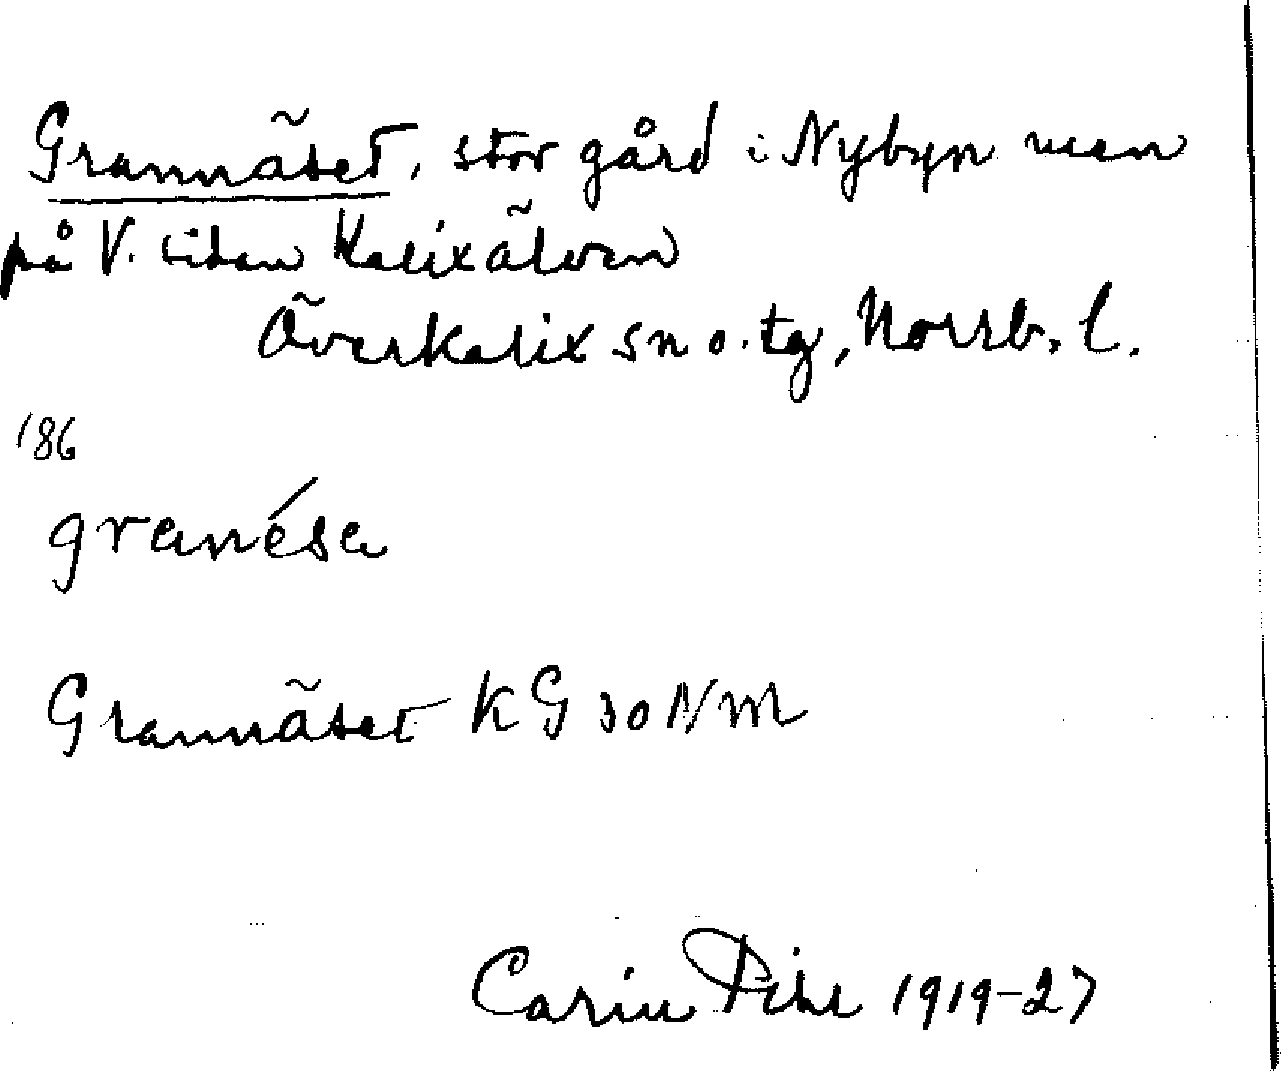 Grannäset, stor gård i Nybyn men
på V. sidan Kalixälven
Överkalix sn o. tg, Norrb. l.
'86
granésa
Grannäset KG 30 NM
Carin Pihl 1919-27